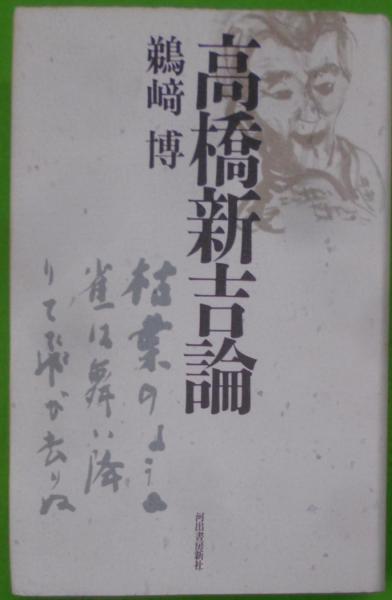 高橋新吉論
鵜﨑 博
枯葉のように
雀は舞い降
りて飛び去りぬ
河出書房新社